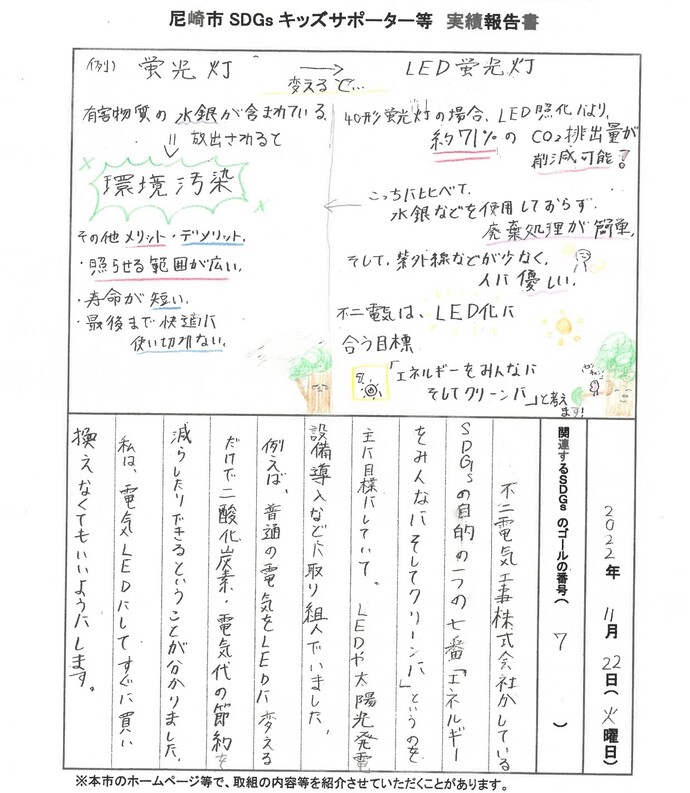 尼崎市 SDGs キッズサポーター等 実績報告書
例) 蛍光灯
変えると…
LED蛍光灯
有害物質の水銀が含まれている
放出されると
環境汚染
その他メリット・デメリット
・照らせる範囲が広い。
・寿命が短い。
・最後まで快適に
使い切れない。
40形蛍光灯の場合、LED照化により、
約71%のCO₂排出量が
削減可能!
こっちに比べて、
水銀などを使用しておらず
廃棄処理が簡単。
そして、紫外線などが少なく、
人に優しい。
不二電気は、LED化に
合う目標
「エネルギーをみんなに
そしてクリーンに」と考え
ます!
2022年 11月 22日(火曜日)
関連するSDGsのゴールの番号( 7 )
不二電気工事株式会社がしている
SDGsの目的の一つの七番「エネルギー
をみんなにそしてクリーンに」というのを
主に目標にしていて、LEDや太陽光発電
設備導入などに取り組んでいました。
例えば、普通の電気をLEDに変える
だけで二酸化炭素・電気代の節約を
減らしたりできるということが分かりました。
私は、電気LEDにしてすぐに買い
換えなくてもいいようにします。
※本市のホームページ等で、取組の内容等を紹介させていただくことがあります。